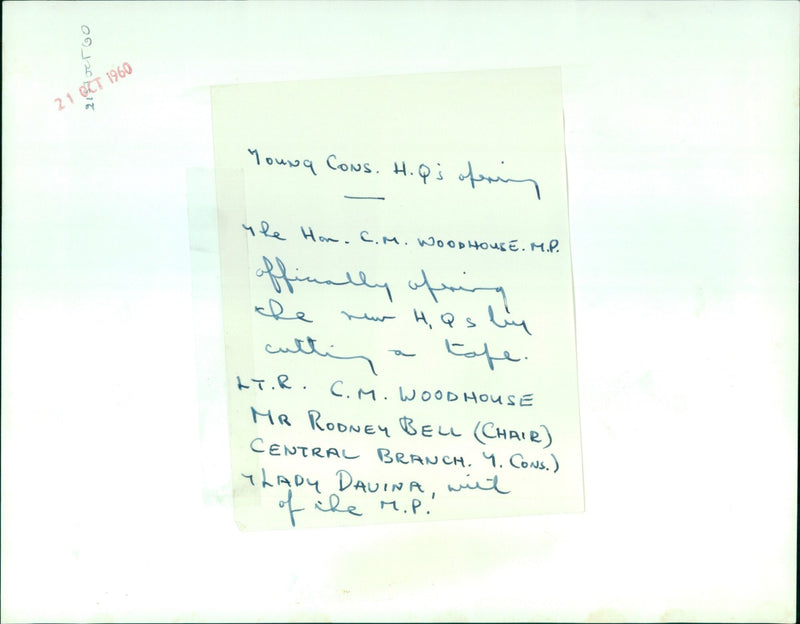 21 OCT 1960
21 OCT 60
Young Cons. H.Q's opening
The Hon. C.M. WOODHOUSE. M.P.
officially opening
the new H,Qs by
cutting a tape.
LT.R. C.M. WOODHOUSE
MR RODNEY BELL (CHAIR)
CENTRAL BRANCH. Y. CONS.)
LADY DAVINA, wife
of the M.P.